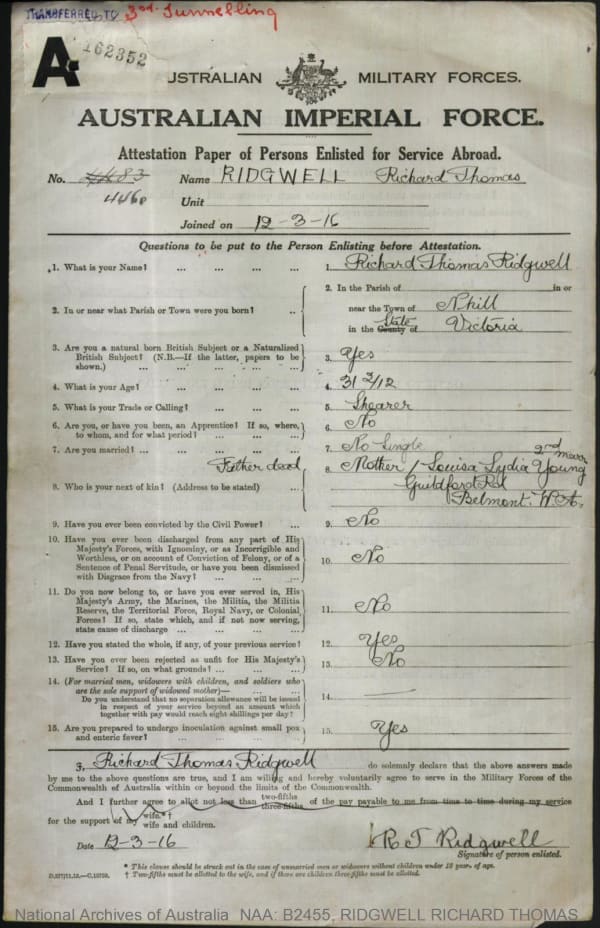 TRANSFERRED TO 3rd. Tunnelling
A. 162352
USTRALIAN MILITARY FORCES.
AUSTRALIAN IMPERIAL FORCE.
Attestation Paper of Persons Enlisted for Service Abroad.
No. Name RIDGWELL Richard Thomas
Unit
Joined on 12-3-16
Questions to be put to the Person Enlisting before Attestation.
1. What is your Name? ... ... ... ... 1. Richard Thomas Ridgwell
2. In or near what Parish or Town were you born? .. 2. In the Parish of in or
near the Town of Nhill
in the County of State Victoria
3. Are you a natural born British Subject or a Naturalized
British Subject? (N.B.—If the latter, papers to be
shown.) ... ... ... ... 3. Yes
4. What is your Age? ... ... ... ... 4. 31 3/12
5. What is your Trade or Calling? ... ... ... 5. Shearer
6. Are you, or have you been, an Apprentice? If so, where,
to whom, and for what period? ... ... ... 6. No
7. Are you married? ... ... ... ... 7. No Single
Father dead, 8. Mother / Louisa Lydia Young 2nd marr
8. Who is your next of kin? (Address to be stated) ... Guildford Rd
Belmont. W.A.
9. Have you ever been convicted by the Civil Power? ... 9. No
10. Have you ever been discharged from any part of His
Majesty's Forces, with Ignominy, or as Incorrigible and
Worthless, or on account of Conviction of Felony, or of a
Sentence of Penal Servitude, or have you been dismissed
with Disgrace from the Navy? ... ... ... 10. No
11. Do you now belong to, or have you ever served in, His
Majesty's Army, the Marines, the Militia, the Militia
Reserve, the Territorial Force, Royal Navy, or Colonial
Forces? If so, state which, and if not now serving,
state cause of discharge ... ... ... 11. No
12. Have you stated the whole, if any, of your previous service? 12. Yes
13. Have you ever been rejected as unfit for His Majesty's
Service? If so, on what grounds? ... ... ... 13. No
14. (For married men, widowers with children, and soldiers who
are the sole support of widowed mother)— ... ...
Do you understand that no separation allowance will be issued
in respect of your service beyond an amount which
together with pay would reach eight shillings per day? 14. —
15. Are you prepared to undergo inoculation against small pox
and enteric fever? ... ... ... ... 15. Yes
I, Richard Thomas Ridgwell do solemnly declare that the above answers made
by me to the above questions are true, and I am willing and hereby voluntarily agree to serve in the Military Forces of the
Commonwealth of Australia within or beyond the limits of the Commonwealth.
And I further agree to allot not less than two-fifths three-fifths of the pay payable to me from time to time during my service
for the support of my wife.*†
wife and children.
Date 12-3-16 R T Ridgwell
Signature of person enlisted.
* This clause should be struck out in the case of unmarried men or widowers without children under 18 years of age.
† Two-fifths must be allotted to the wife, and if there are children three-fifths must be allotted.
National Archives of Australia NAA: B2455, RIDGWELL RICHARD THOMAS